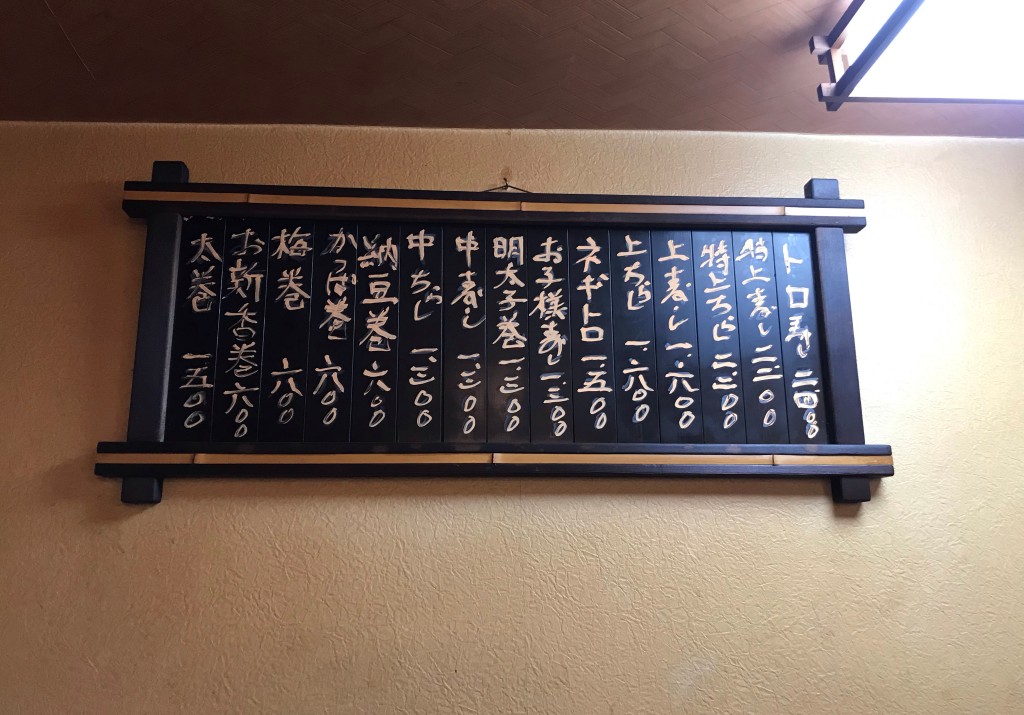 トロ寿し 二、四〇〇
特上寿し 二、三〇〇
特上ちらし 二、三〇〇
上寿し 一、六〇〇
上ちらし 一、六〇〇
ネギトロ 一、五〇〇
お子様寿し 一、三〇〇
明太子巻 一、三〇〇
中寿し 一、三〇〇
中ちらし 一、三〇〇
納豆巻 六〇〇
かっぱ巻 六〇〇
梅巻 六〇〇
お新香巻 六〇〇
太巻 一、五〇〇